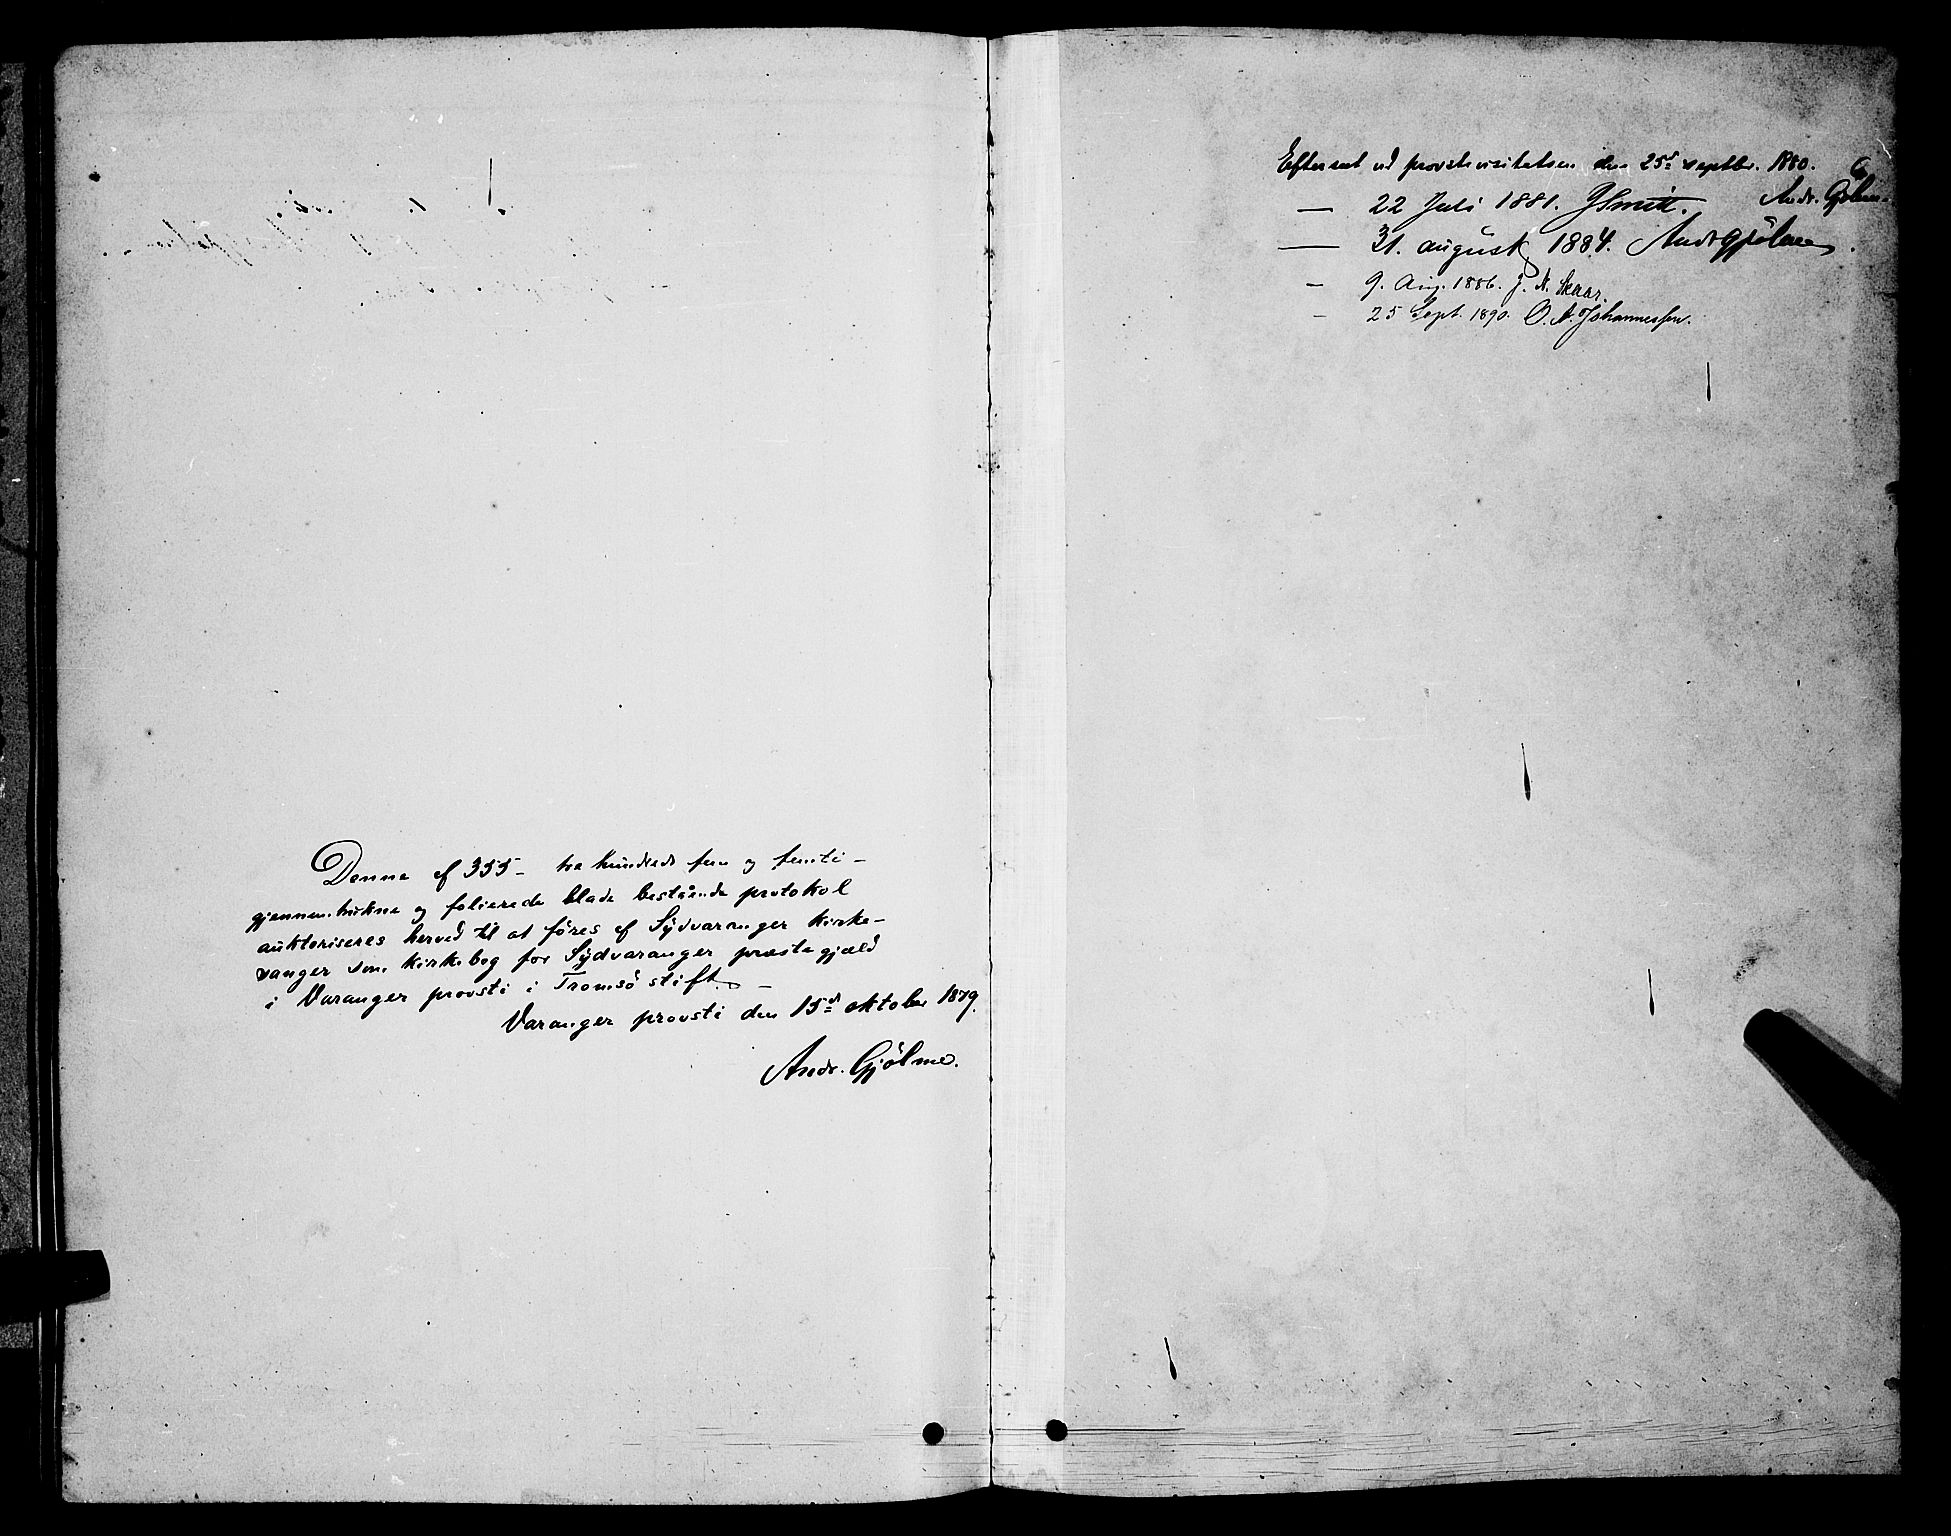 Denne af 355 – tre hundrede fem og femti –
gjennemtrukne og folierede blade bestående protokol
auktoriseres herved til at föres af Sydvaranger kirke-
sanger som kirkebog for Sydvaranger præstegjæld
i Varanger provsti i Tromsö stift. –
Varanger provsti den 15d oktober 1879.
Andr. Gjölme.
Efterseet ved provstevisitatsen den 25d septbr. 1880.
Andr. Gjölme.
— 22 Juli 1881. JSmitt.
— 31. august 1884. Andr Gjölme.
— 9. Aug. 1886. J. N. Skaar.
— 25 Sept. 1890. O. A. Johannessen.